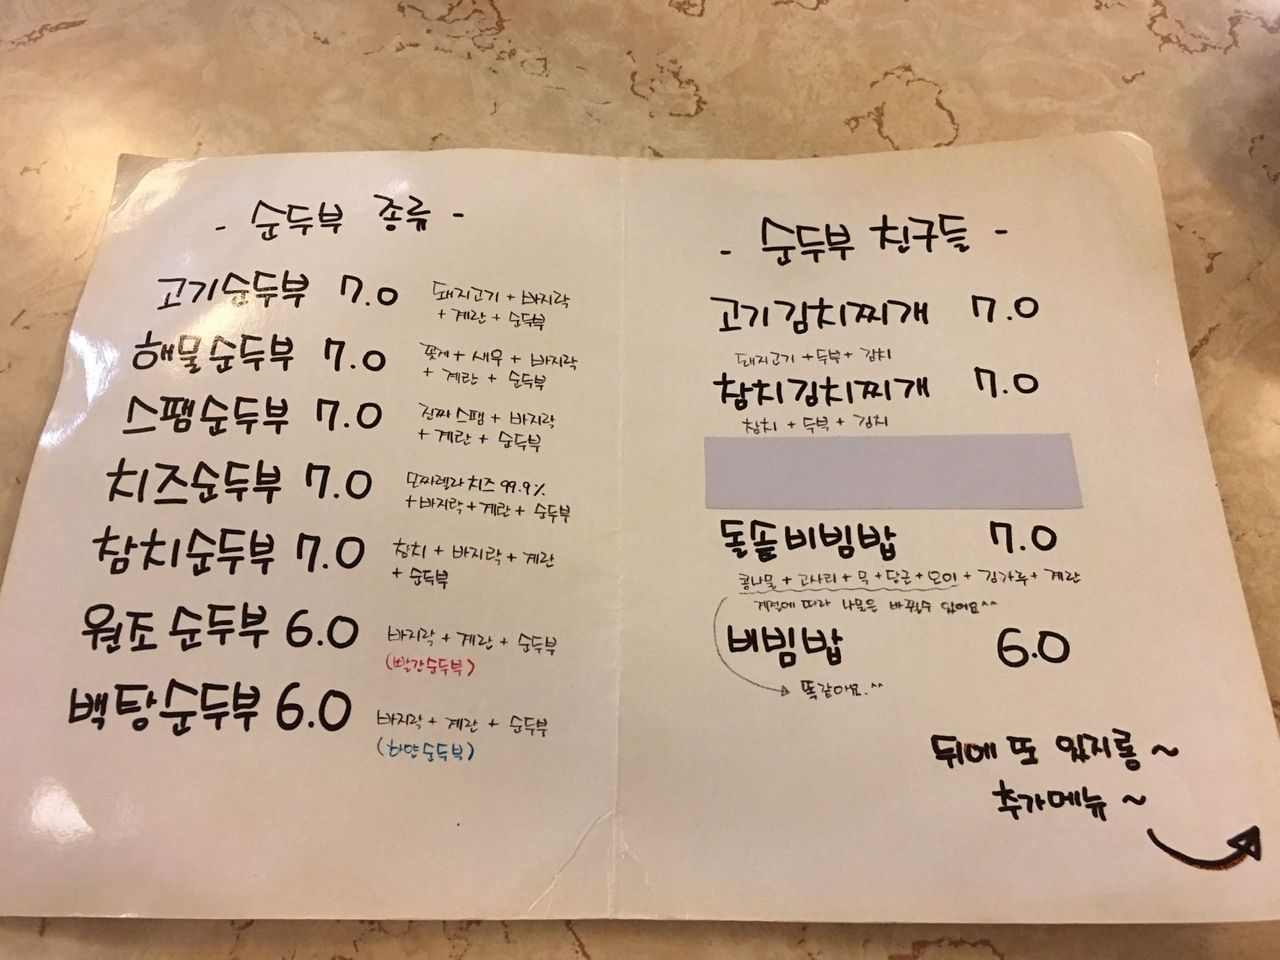 - 순두부 종류 -
고기순두부 7.0
돼지고기 + 바지락
+ 계란 + 순두부
해물순두부 7.0
꽃게 + 새우 + 바지락
+ 계란 + 순두부
스팸순두부 7.0
진짜 스팸 + 바지락
+ 계란 + 순두부
치즈순두부 7.0
모짜렐라 치즈 99.9%
+ 바지락 + 계란 + 순두부
참치순두부 7.0
참치 + 바지락 + 계란
+ 순두부
원조 순두부 6.0
바지락 + 계란 + 순두부
(빨간순두부)
백탕순두부 6.0
바지락 + 계란 + 순두부
(하얀순두부)
- 순두부 친구들 -
고기김치찌개 7.0
돼지고기 + 두부 + 김치
참치김치찌개 7.0
참치 + 두부 + 김치
돌솥비빔밥 7.0
콩나물 + 고사리 + 묵 + 당근 + 오이 + 김가루 + 계란
계절에 따라 나물은 바뀔수 있어요^^
비빔밥 6.0
똑같아요.^^
뒤에 또 있지롱~
추가메뉴~